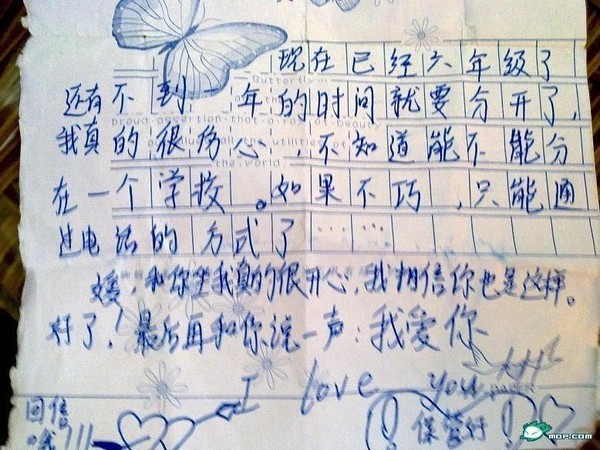 现在已经六年级了
还有不到一年的时间就要分开了,
我真的很伤心,不知道能不能分
在一个学校。如果不巧,只能通
过电话的方式了……
和你坐我真的很开心,我相信你也是这样。
好了!最后再和你说一声:我爱你
I love you
回信
哦!!!
保管好!
mop.com